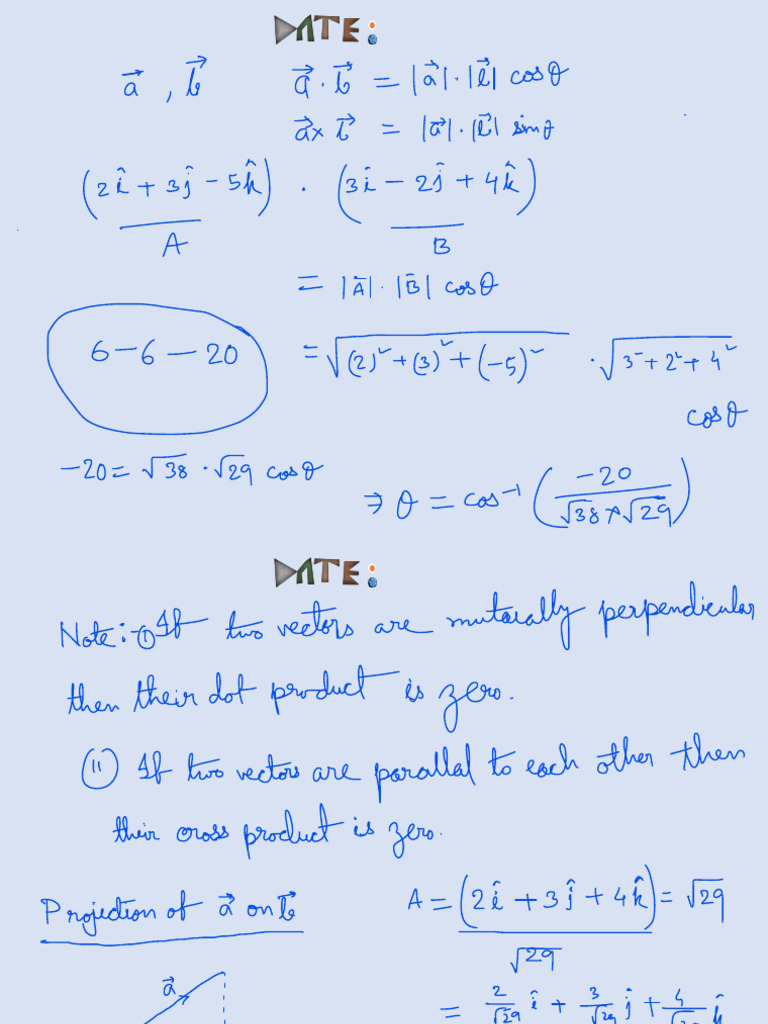 DATE:
a⃗ , b⃗ a⃗ · b⃗ = |a⃗| · |b⃗| cosθ
a⃗ × b⃗ = |a⃗| · |b⃗| sinθ
(2î + 3ĵ - 5k̂) · (3î - 2ĵ + 4k̂)
A B
= |A̅| · |B̅| cosθ
6 - 6 - 20 = √((2)² + (3)² + (-5)²) · √(3² + 2² + 4²)
cosθ
-20 = √38 · √29 cosθ
⇒ θ = cos⁻¹ (-20 / (√38 × √29))
DATE:
Note:- (i) If two vectors are mutually perpendicular
then their dot product is zero.
(ii) If two vectors are parallal to each other then
their cross product is zero.
Projection of a⃗ on b⃗ A = (2î + 3ĵ + 4k̂) = √29
√29
a⃗ = 2/√29 î + 3/√29 ĵ + 4/√29 k̂